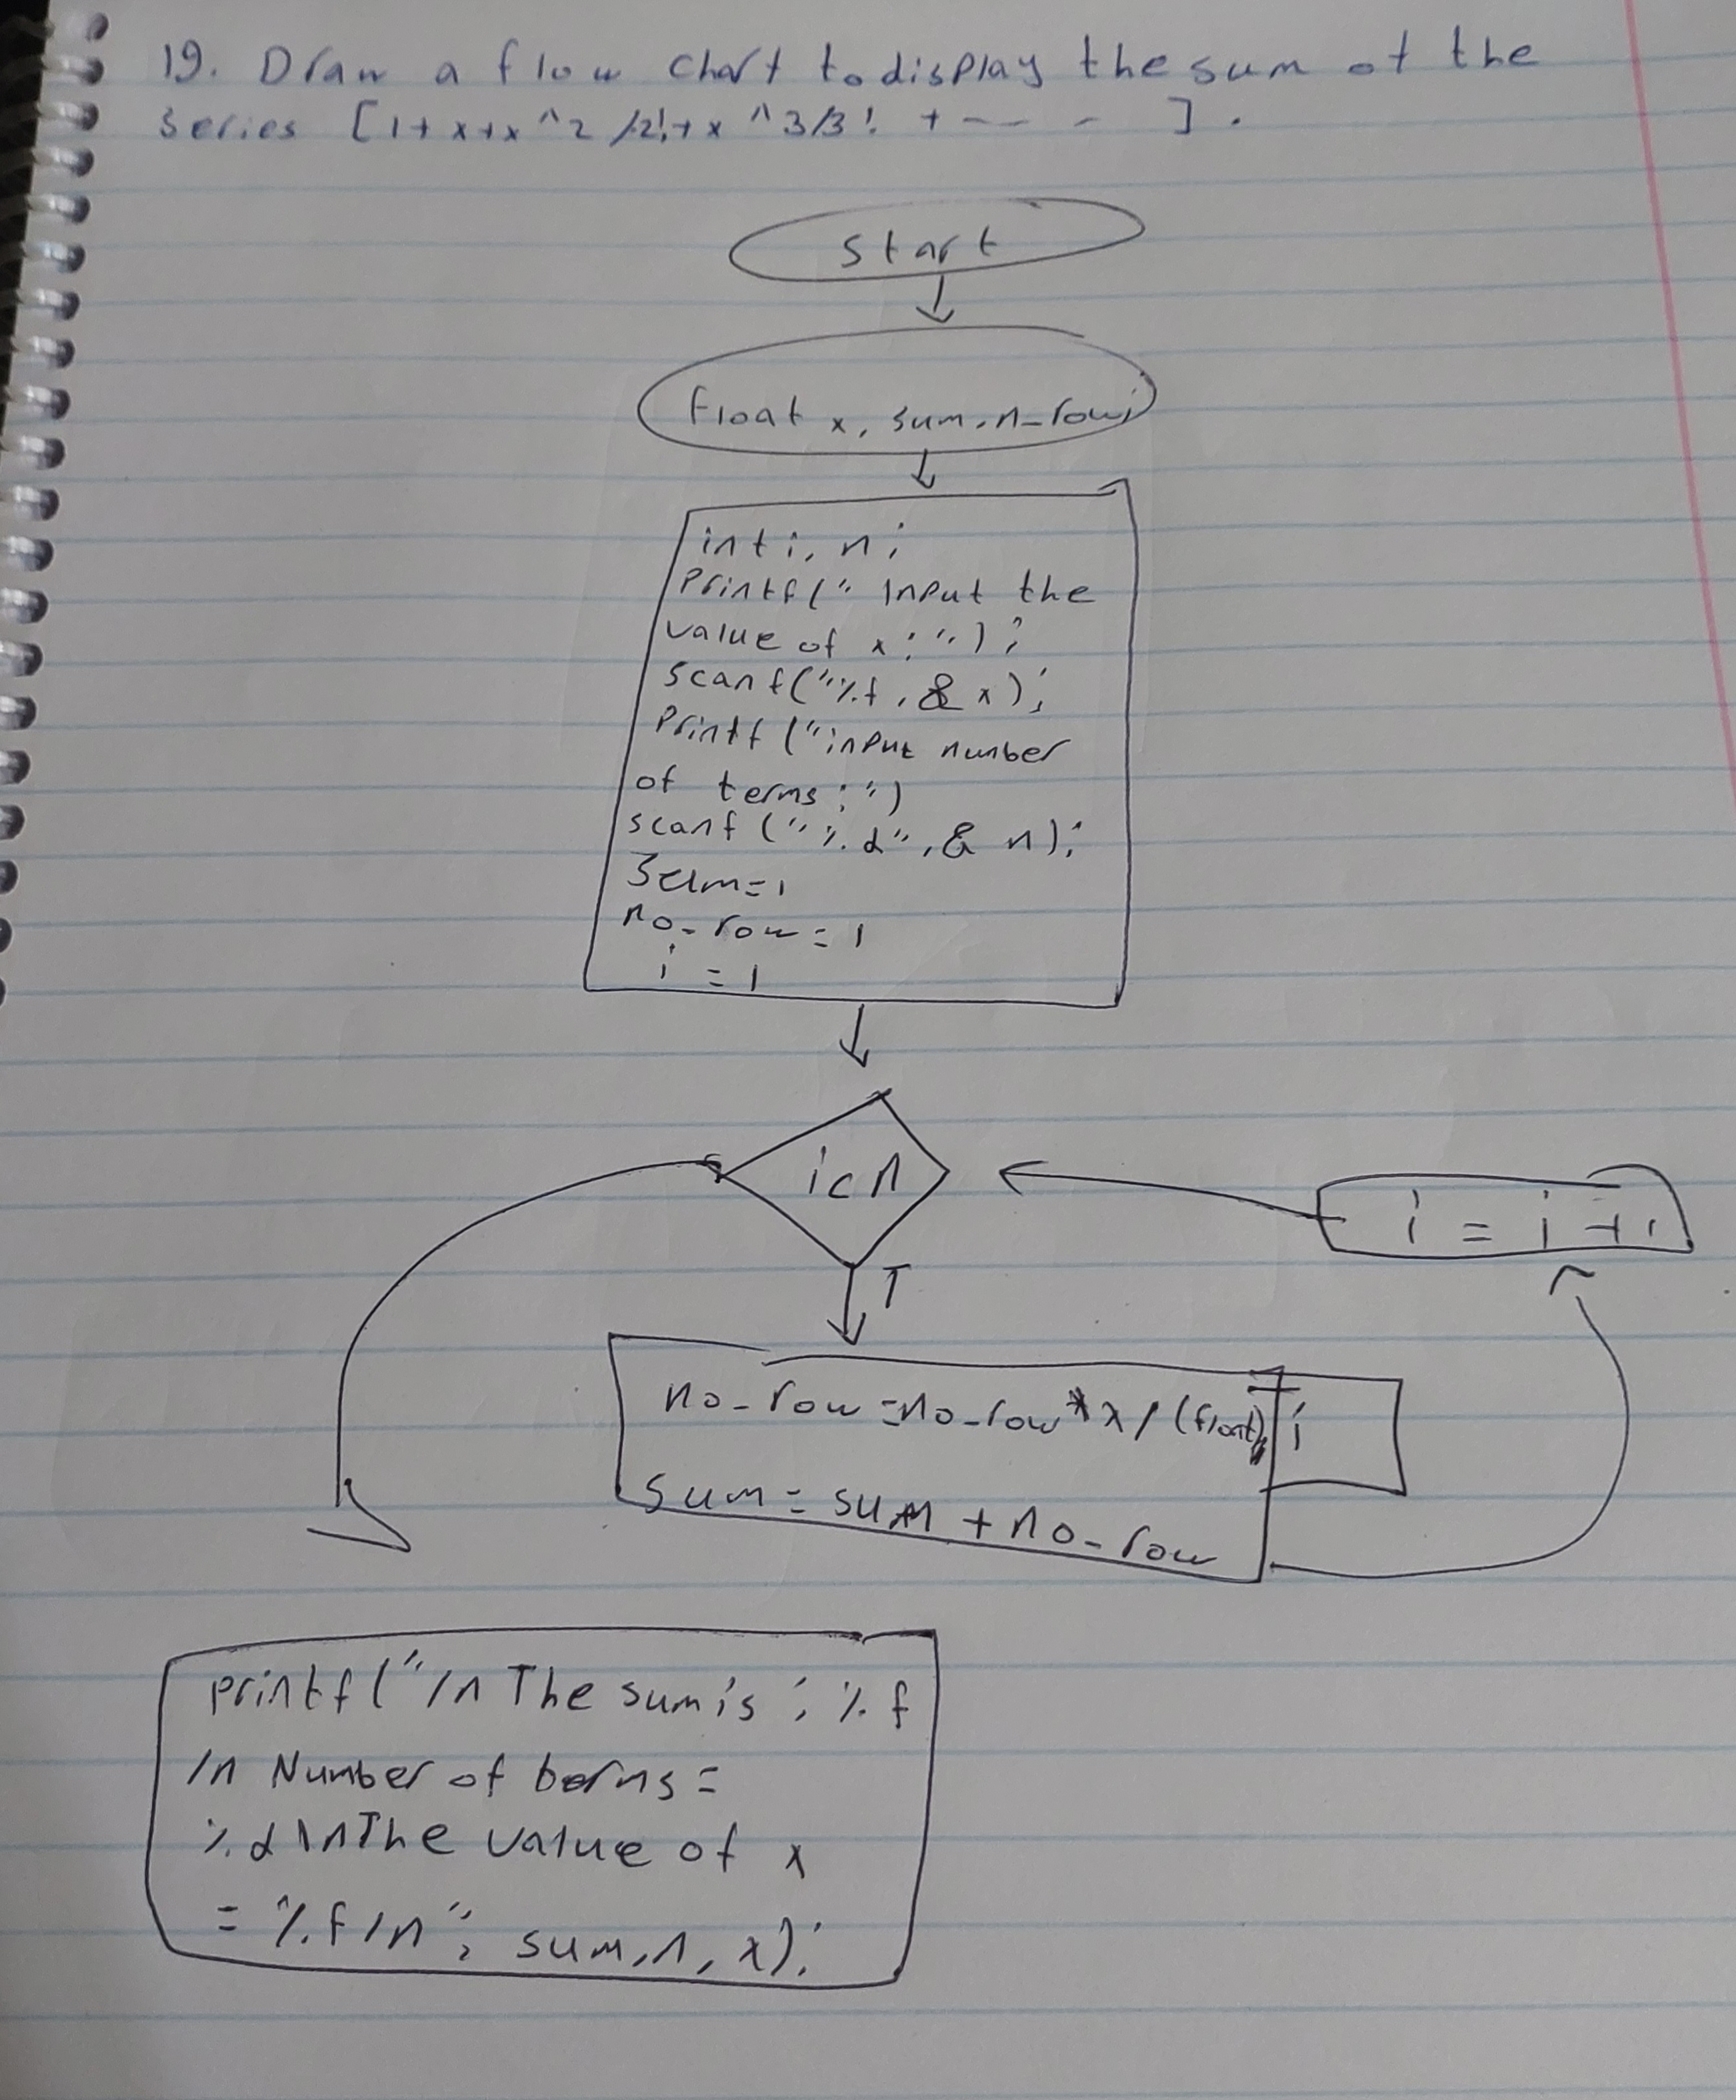 19. Draw a flow chart to display the sum of the
series [1+x+x^2/2!+x^3/3! + --- - ].
start
float x, sum, n_row;
int i, n;
Printf(" Input the
value of x : ") ;
scanf("%f , & x);
Printf ("input number
of terms : ")
scanf ("%d", & n);
Sum=1
no_row = 1
i = 1
i<n
i = i + 1
T
no_row =no_row * x / (float) i
sum = sum + no_row
printf("/n The sum is : %f
/n Number of terms =
%d \n The value of x
= %f /n", sum, n, x);